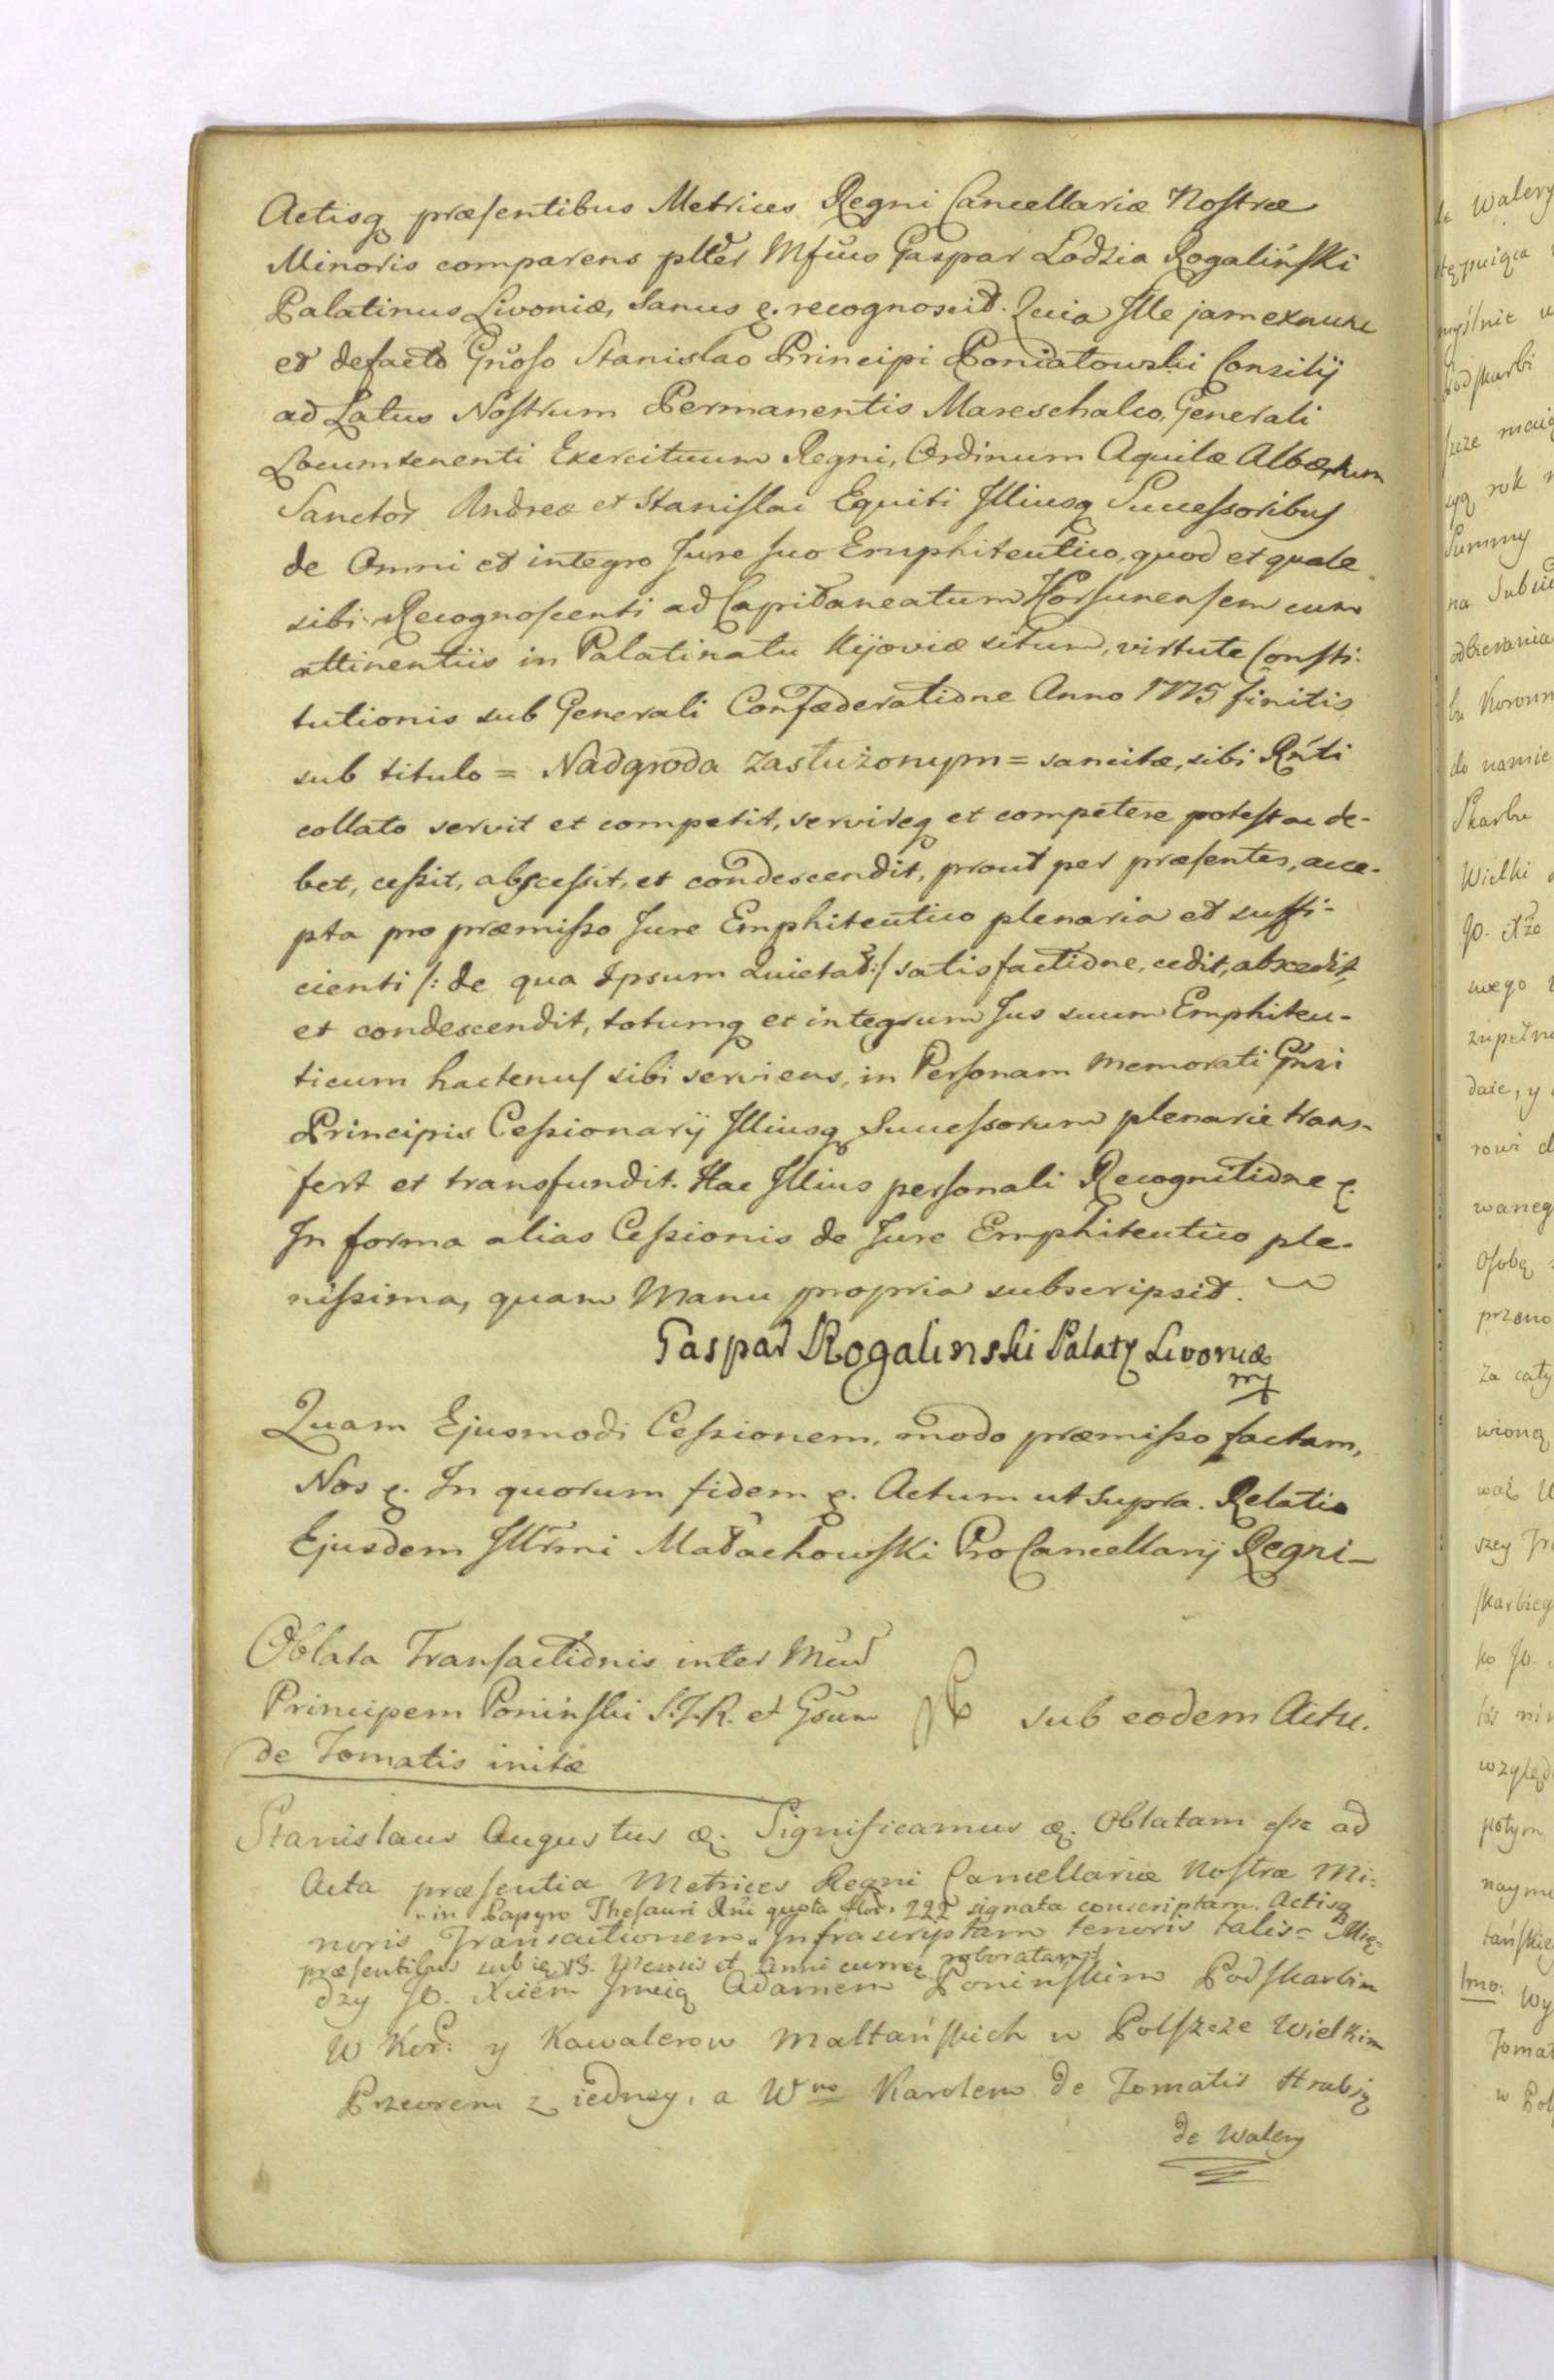 Actisq præsentibus Metrices Regni Cancellariæ Nostræ
Minoris comparens plter Mfcus Gaspar Lodzia Rogaliński
Palatinus Livoniæ, Sanus &. recognoscit. Quia Ille jam exnunc
et defacto Gnoso Stanislao Principi Poniatowski Consilij
ad Latus Nostrum Permanentis Mareschalco, Generali
Locumtenenti Exercituum Regni, Ordinum Aquilæ Albæ, tum
Sanctor Andreæ et Stanislai Equiti Illiusq Successoribus
de Omni et integro Jure suo Emphiteutico, quod et quale
sibi Recognoscenti ad Capitaneatum Korsunensem cum
attinentiis in Palatinatu Kijoviæ situm, virtute Consti:
tutionis sub Generali Confæderatione Anno 1775 finitis
sub titulo = Nadgroda zasłużonym = sancitæ, sibi Rnti
collato servit et competit, servireq et competere potest ac de-
bet, cessit, abscessit, et condescendit, prout per præsentes, acce-
pta pro præmisso Jure Emphiteutico plenaria et suffi-
cienti /: de qua Ipsum Quietat :/ satisfactione, cedit, abscedit,
et condescendit, totumq et integrum Jus suum Emphiteu-
ticum hactenus sibi serviens, in Personam memorati Gnsi
Principis Cessionarij Illiusq Successorum plenarie trans-
fert et transfundit. Hac Illius personali Recognitione &.
In forma alias Cessionis de Jure Emphiteutico ple-
nissima, quam Manu propria subscripsit.
Gaspar Rogalinski Palatq Livoniæ
mp
Quam Ejusmodi Cessionem, modo præmisso factam,
Nos &. In quorum fidem &. Actum ut supra. Relatio
Ejusdem Illrmi Małachowski ProCancellarij Regni-
Oblata Transactionis inter Mcum
Principem Poniński S.J.R. et Gsum
sub eodem Actu.
de Tomatis initæ
Stanislaus Augustus &. Significamus &. Oblatam esse ad
Acta præsentia Metrices Regni Cancellariæ Nostræ Mi:
"in Papyro Thesauri Rni quota flor. 222 signata conscriptam. Actisq
noris Transactionem " Infrascriptam tenoris talis = Mię:
præsentibus sub 18. Mensis et Anni curren roboratam
dzy JO. Xciem Jmcią Adamem Ponińskim Podskarbim
W Kor: y Kawalerow Maltańskich w Polszcze Wielkim
Przeorem z iedney, a Wno Karolem de Tomatis Hrabią
de Walery